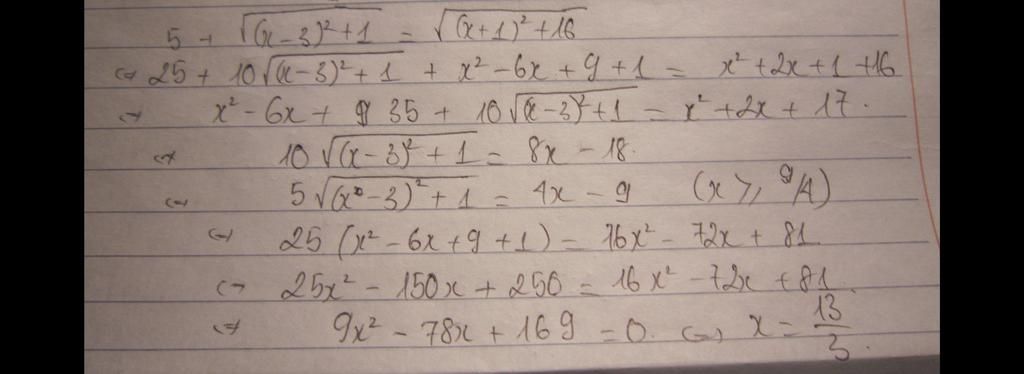 5 + √((x-3)²+1) = √((x+1)²+16)
⇔ 25 + 10√((x-3)²+1) + x²-6x+9+1 = x²+2x+1+16
⇔ x²-6x+ 35 + 10√((x-3)²+1) = x²+2x+17.
⇔ 10√((x-3)²+1) = 8x-18.
⇔ 5√((x-3)²+1) = 4x-9 (x ≥ 9/4)
⇔ 25(x²-6x+9+1) = 16x²-72x+81
⇔ 25x²-150x+250 = 16x²-72x+81.
⇔ 9x²-78x+169 = 0. ⇔ x = 13/3.